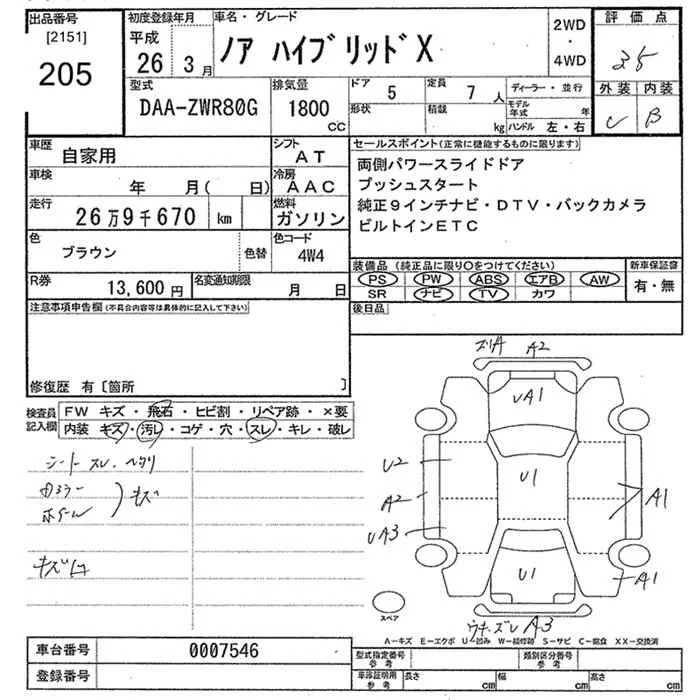 出品番号
[2151]
205
初度登録年月
平成
26 3月
車名・グレード
ノア ハイブリッドX
2WD
・
4WD
評価点
35
型式
DAA-ZWR80G
排気量
1800
CC
ドア 5
定員 7人
形状
積載 kg
ディーラー・並行
モデル年式 年
ハンドル 左・右
外装 内装
C B
車歴 自家用
シフト AT
車検 年 月( 日)
冷房 AAC
走行 26万9千670 km
燃料 ガソリン
色 ブラウン
色替
色コード 4W4
R券 13,600円
名変通知期限 月 日
セールスポイント(正常に機能するものに限ります)
両側パワースライドドア
プッシュスタート
純正9インチナビ・DTV・バックカメラ
ビルトインETC
装備品(純正品に限り〇をつけてください)
新車保証書
PS PW ABS エアB AW
SR ナビ TV カワ
有・無
注意事項申告欄(不具合内容等は具体的に記入して下さい)
後日品
修復歴 有〔箇所 〕
検査員記入欄
FW キズ・飛石・ヒビ割・リペア跡・×要
内装 キズ・汚レ・コゲ・穴・スレ・キレ・破レ
シートスレ・ヘタリ
ホイール
キズ
ズリA A2
UA1
U2
U1
A2
A1
UA3
A1
U1
A3
スペア
A－キズ E－エクボ U－凹み W－補修跡 S－サビ C－腐食 XX－交換済
車台番号 0007546
登録番号
型式指定番号 参考
類別区分番号 参考
車庫証明用 参考
長さ cm
幅 cm
高さ cm